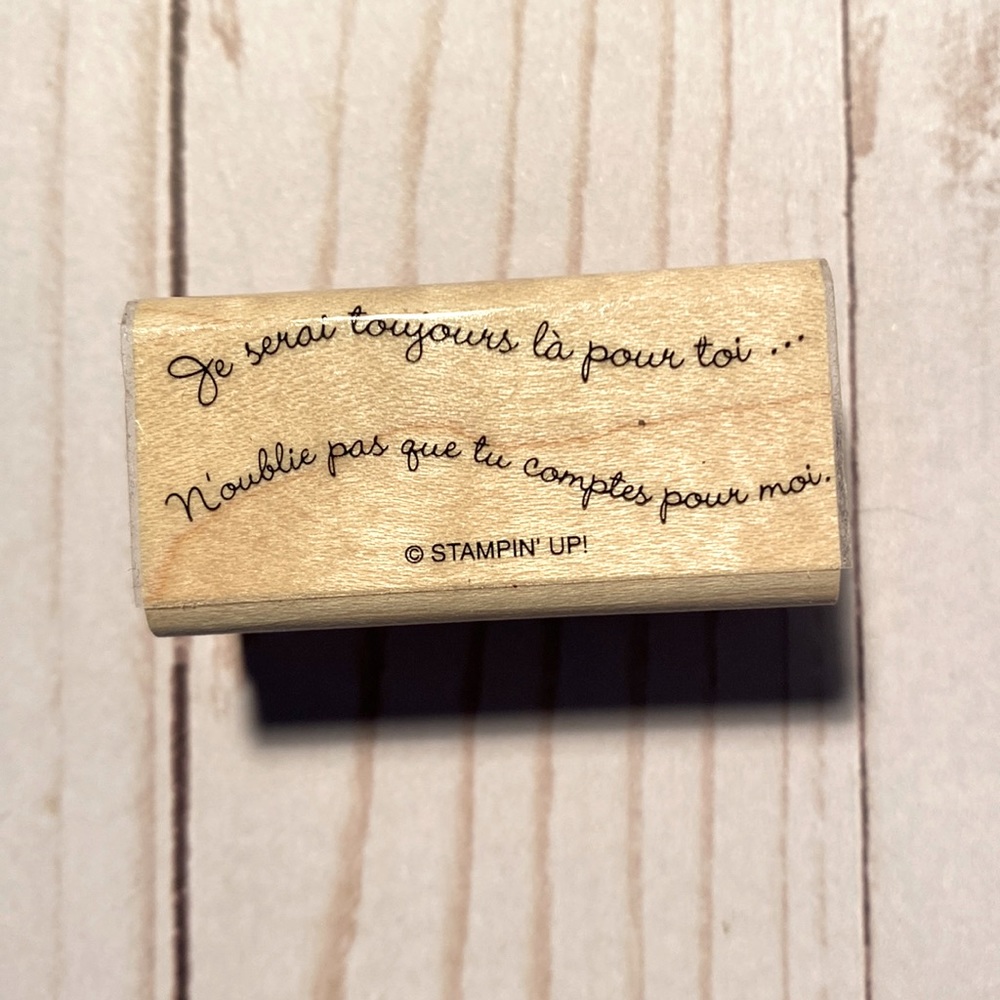 Je serai toujours là pour toi ...
N'oublie pas que tu comptes pour moi.
© STAMPIN' UP!